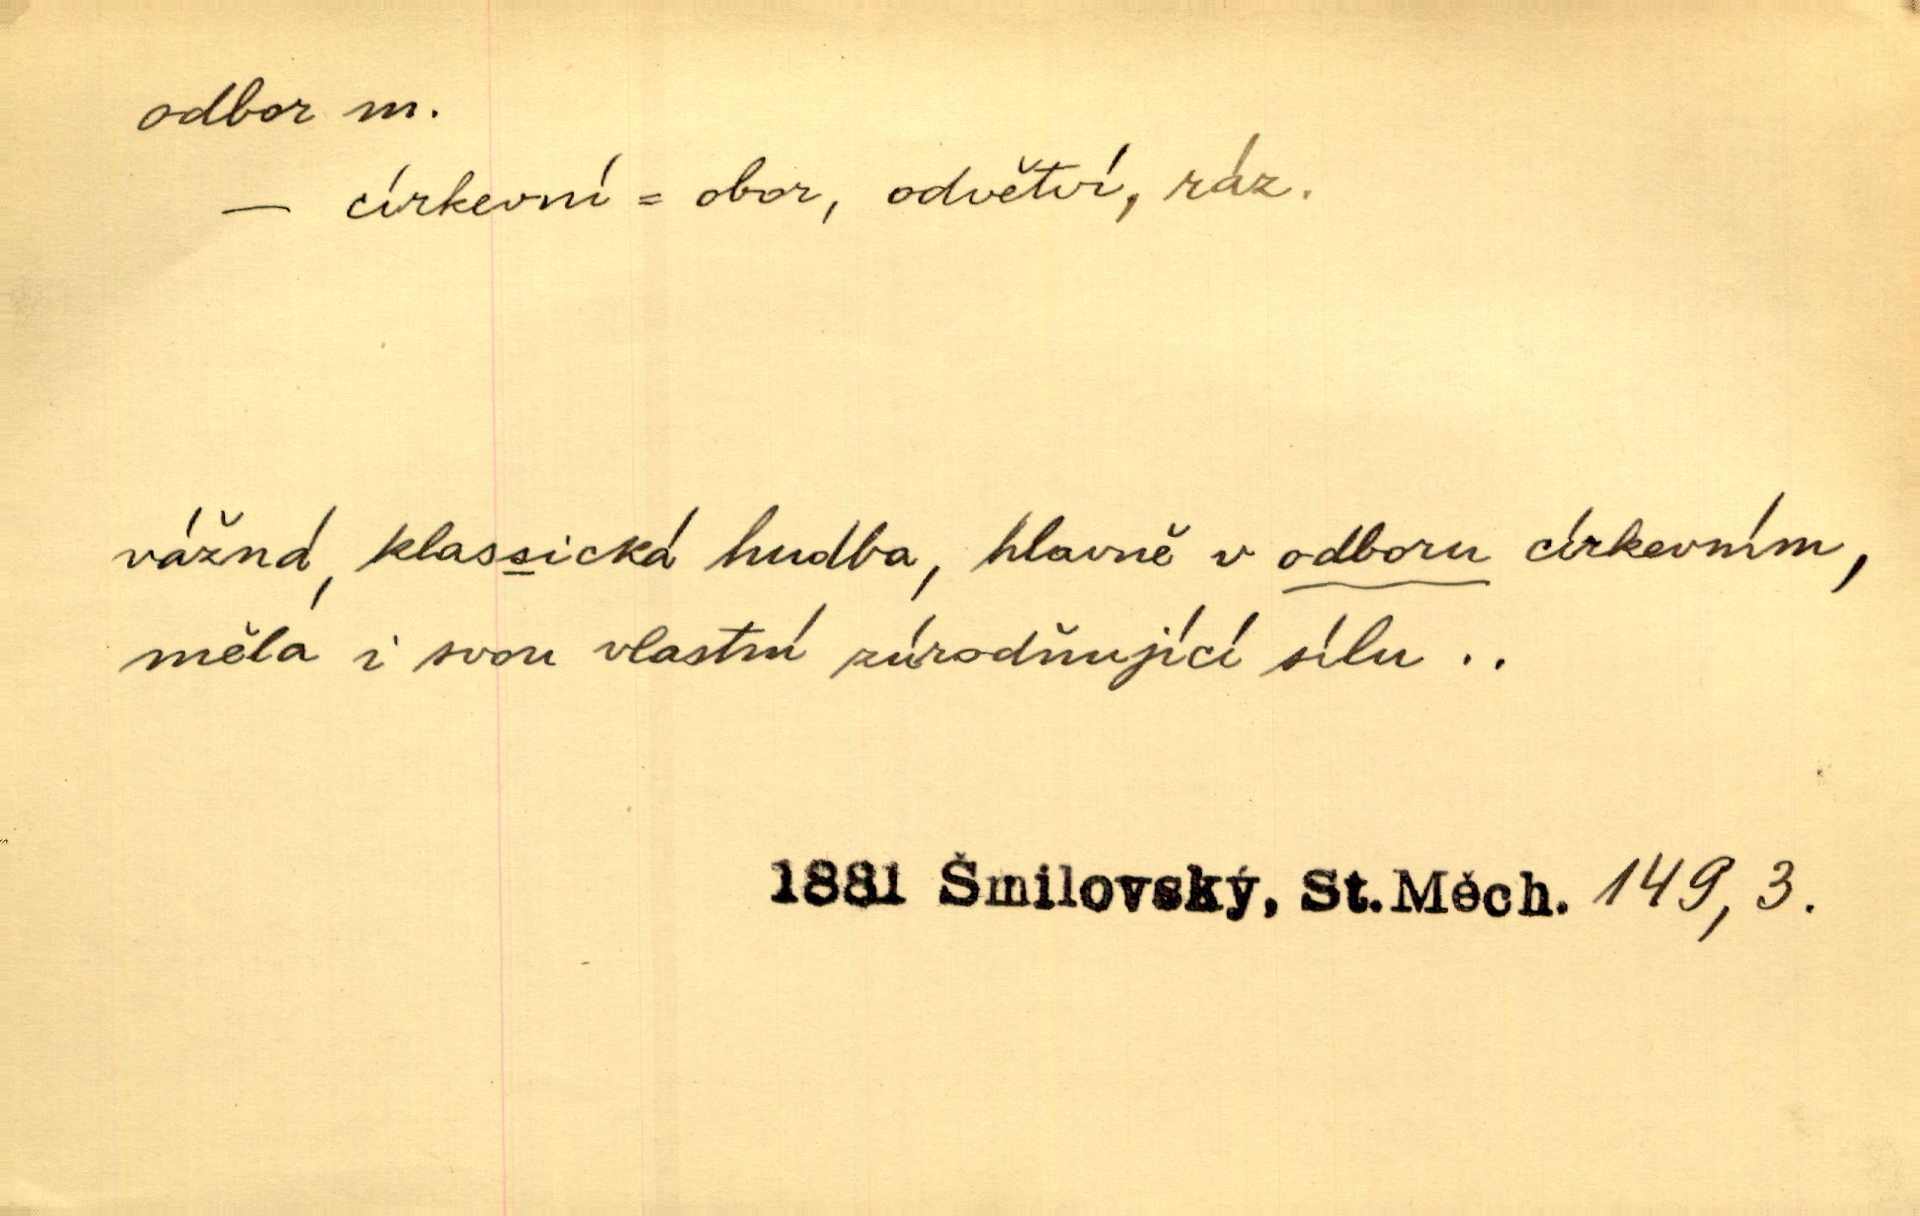 odbor m.
— církevní = obor, odvětví, ráz.
vážná, klassická hudba, hlavně v odboru církevním,
měla i svou vlastní zúrodňující sílu ..
1881 Šmilovský, St. Měch. 149, 3.